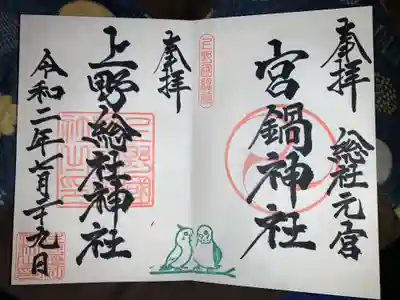 奉拝
総社元宮
宮鍋神社
奉拝
上野総社神社
令和二年一月二十九日